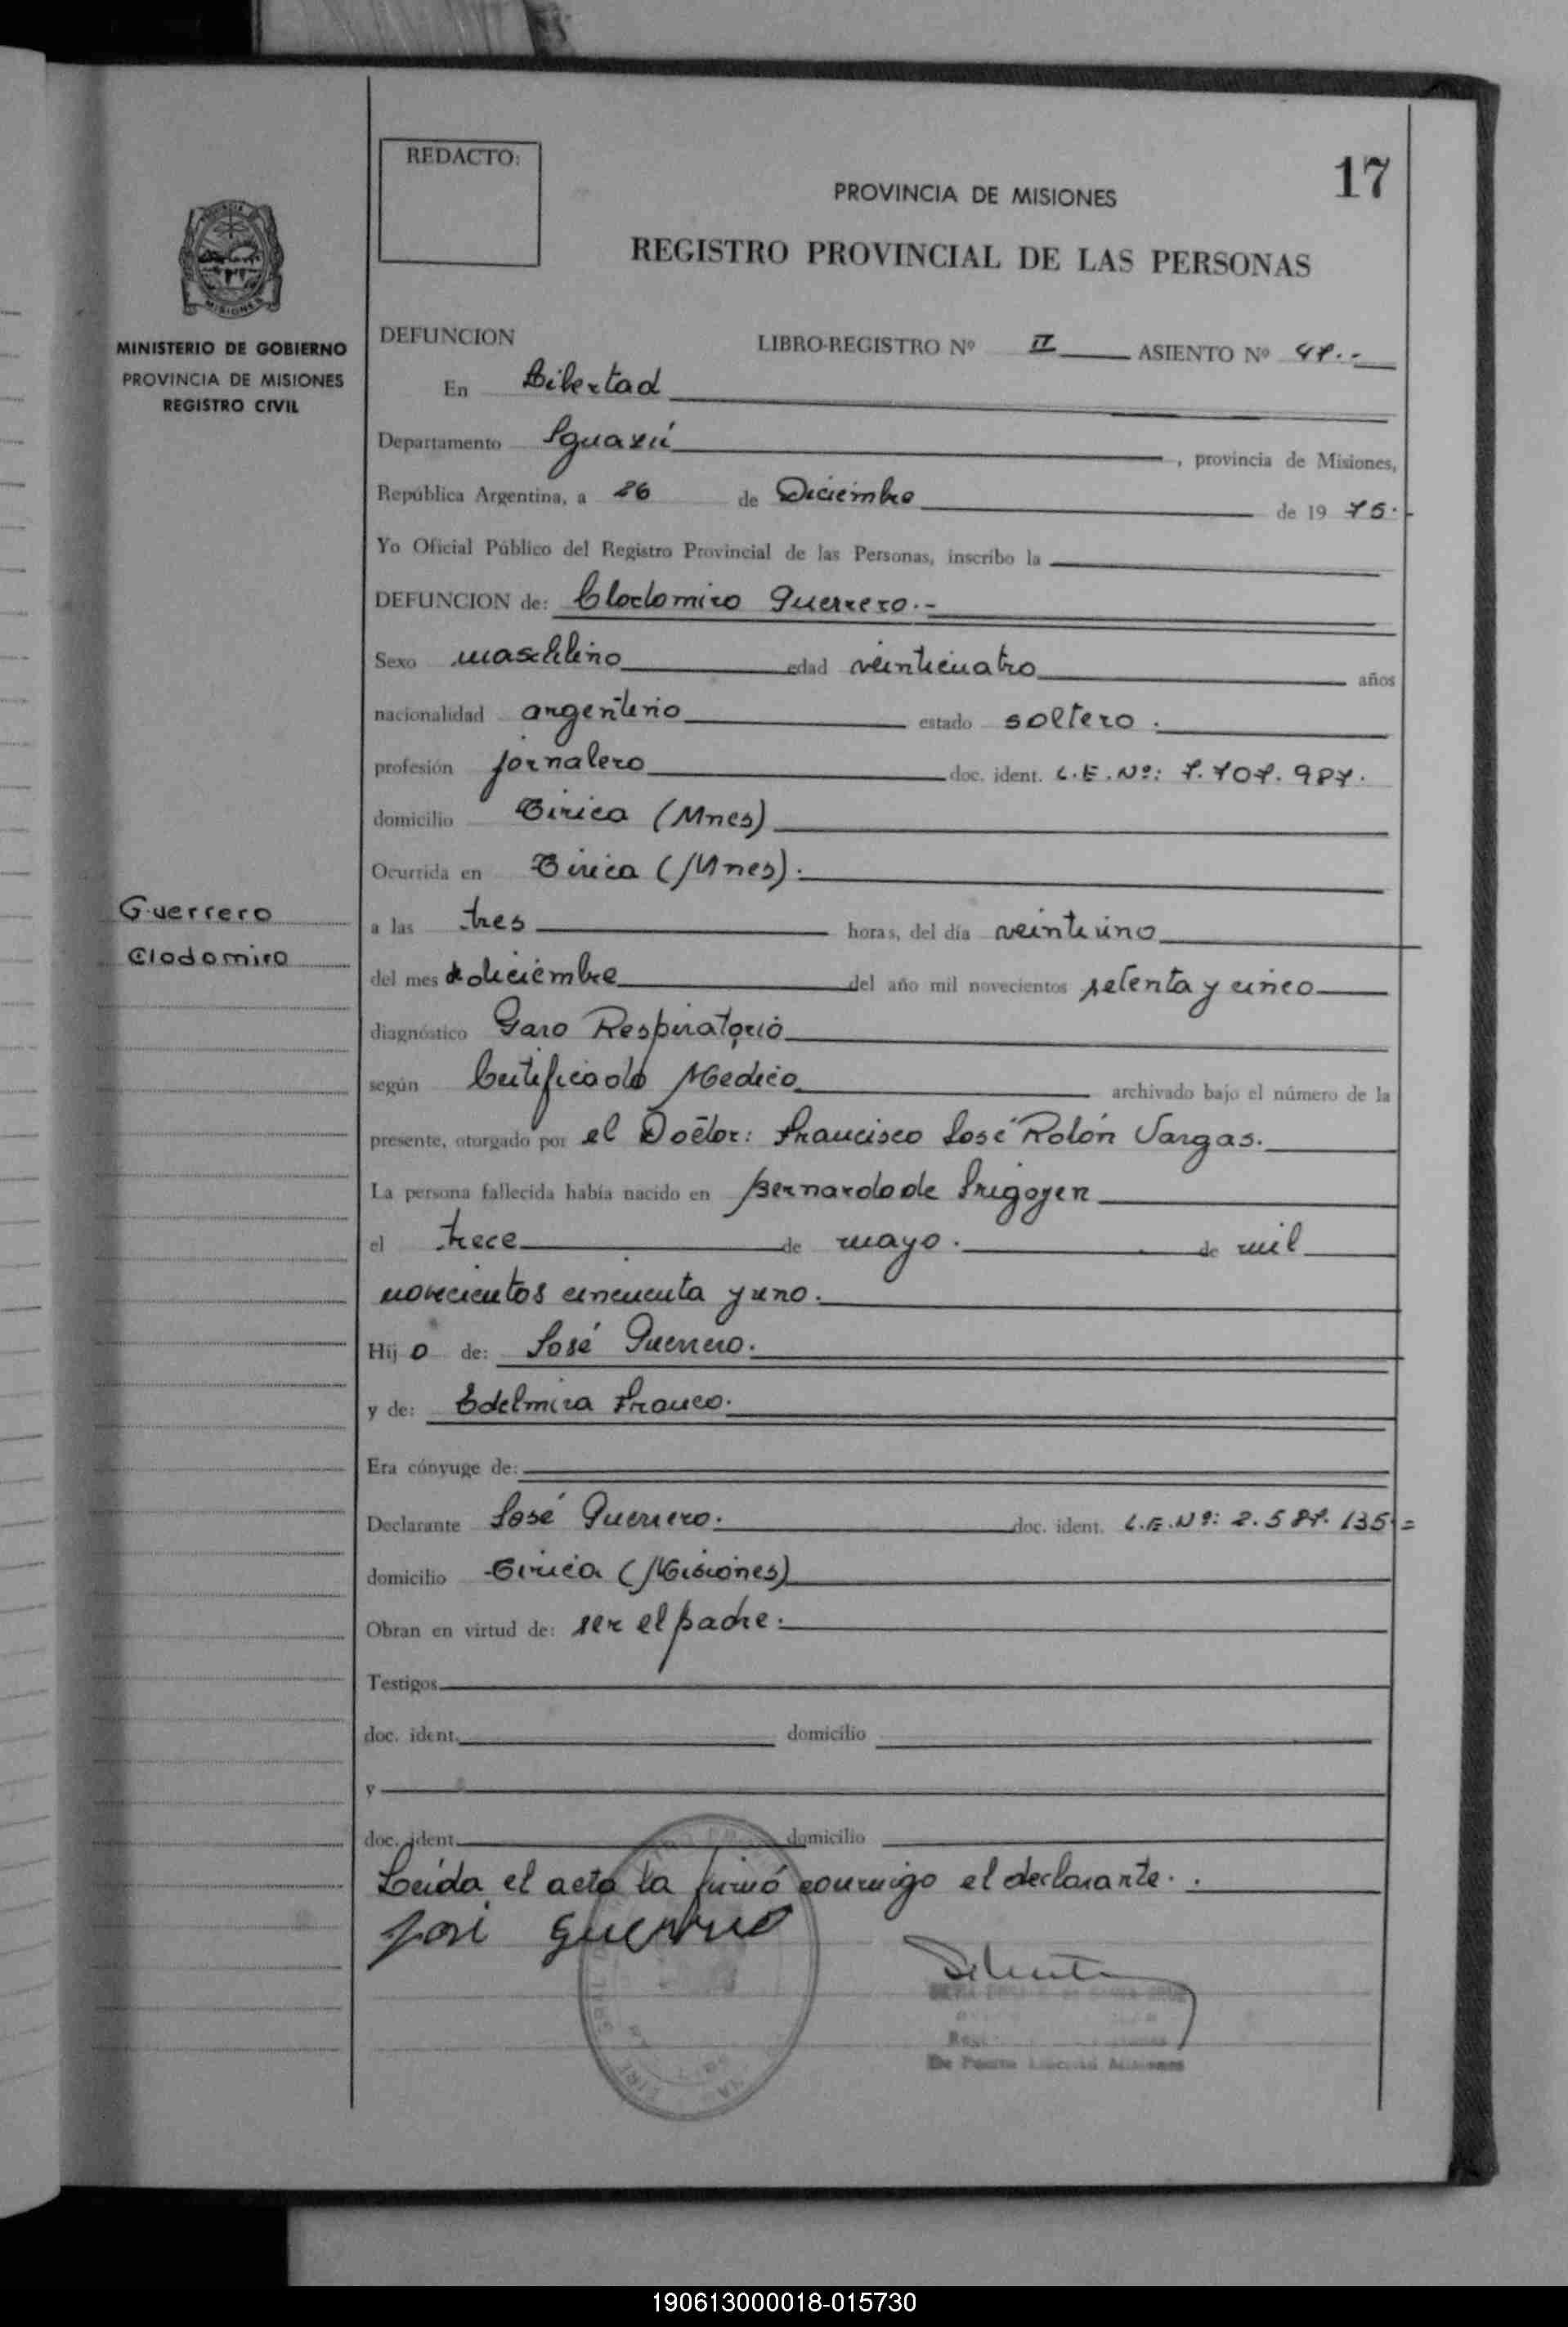 17
REDACTO:
PROVINCIA DE MISIONES
REGISTRO PROVINCIAL DE LAS PERSONAS
MISIONES
MINISTERIO DE GOBIERNO
PROVINCIA DE MISIONES
REGISTRO CIVIL
DEFUNCION LIBRO-REGISTRO Nº II ASIENTO Nº 47.-
En Libertad
Departamento Iguazú, provincia de Misiones,
República Argentina, a 26 de Diciembre de 1975.
Yo Oficial Público del Registro Provincial de las Personas, inscribo la
DEFUNCION de: Clodomiro Guerrero.-
Sexo masculino edad veinticuatro años
nacionalidad argentino estado soltero.
profesión jornalero doc. ident. L.E.Nº: 7.707.987.
domicilio Tirica (Mnes)
Ocurrida en Tirica (Mnes).
Guerrero
Clodomiro
a las tres horas, del día veintiuno
del mes de diciembre del año mil novecientos setenta y cinco
diagnóstico Paro Respiratorio
según Certificado Medico archivado bajo el número de la
presente, otorgado por el Doctor: Francisco José Rolón Vargas.
La persona fallecida había nacido en Bernardo de Irigoyen
el trece de mayo. de mil
novecientos cincuenta y uno.
Hijo de: José Guerrero.
y de: Edelmira Franco.
Era cónyuge de:
Declarante José Guerrero. doc. ident. L.E.Nº: 2.587.135.=
domicilio Tirica (Misiones)
Obran en virtud de: ser el padre.
Testigos
doc. ident. domicilio
y
doc. ident. domicilio
Leída el acta la firmó conmigo el declarante.
José Guerrero
De Puerto Libertad Misiones
190613000018-015730